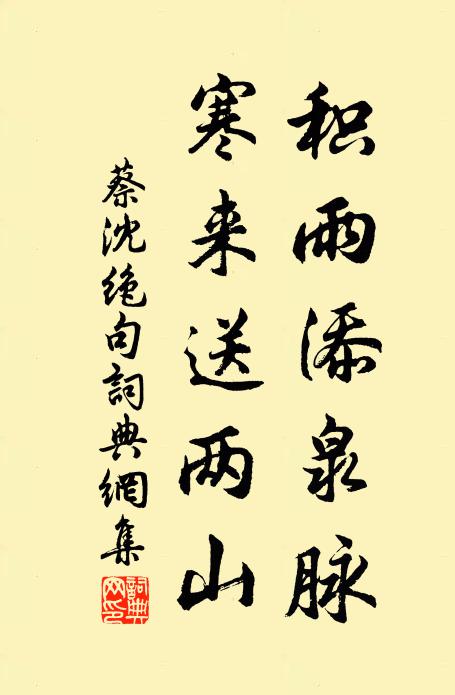 积雨添泉脉
寒来送两山
蔡沈絶句詞典網集
詞典網印